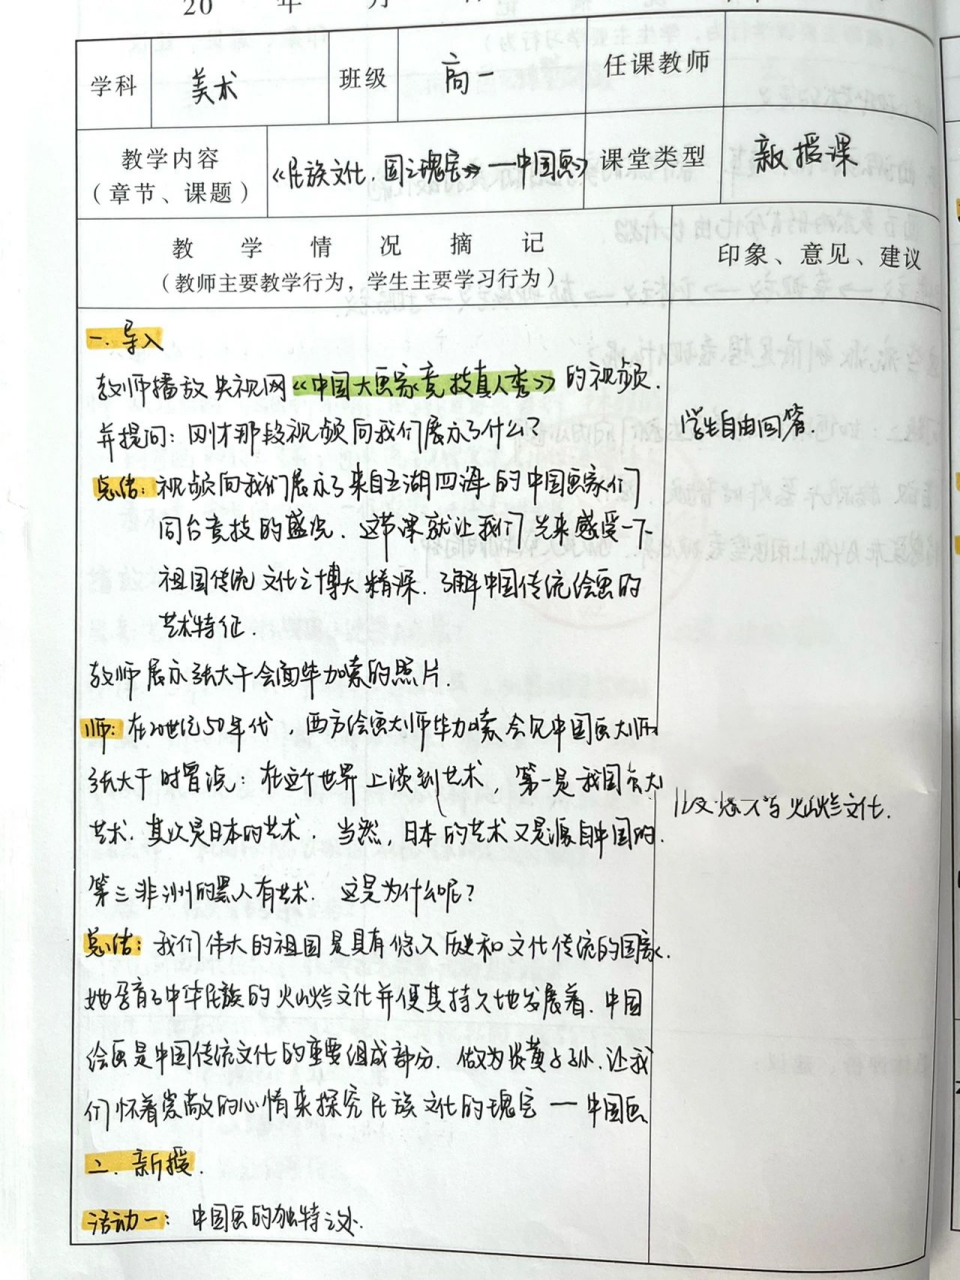 20 年 月
学科 美术 班级 高一 任课教师
教学内容 (章节、课题) 《民族文化,国之瑰宝》—中国画》 课堂类型 新授课
教学情况摘记
(教师主要教学行为,学生主要学习行为)
印象、意见、建议
一. 导入
教师播放央视网《中国大画家竞技真人秀》的视频.
并提问: 刚才那段视频向我们展示了什么?
学生自由回答.
总结: 视频向我们展示了来自五湖四海的中国画家们
同台竞技的盛况. 这节课就让我们先来感受一下
祖国传统文化之博大精深. 了解中国传统绘画的
艺术特征.
教师展示张大千会面毕加索的照片.
师: 在20世纪50年代, 西方绘画大师毕加索会见中国画大师
张大千时曾说: 在这个世界上谈到艺术, 第一是我国
艺术. 其次是日本的艺术. 当然, 日本的艺术又是源自中国的.
灿烂文化.
第三非洲的黑人有艺术. 这是为什么呢?
总结: 我们伟大的祖国是具有悠久历史和文化传统的国家.
她孕育了中华民族的灿烂文化并使其持久地发展着. 中国
绘画是中国传统文化的重要组成部分. 做为炎黄子孙. 让我
们怀着崇敬的心情来探究民族文化的瑰宝 — 中国画
二. 新授.
活动一: 中国画的独特之处.